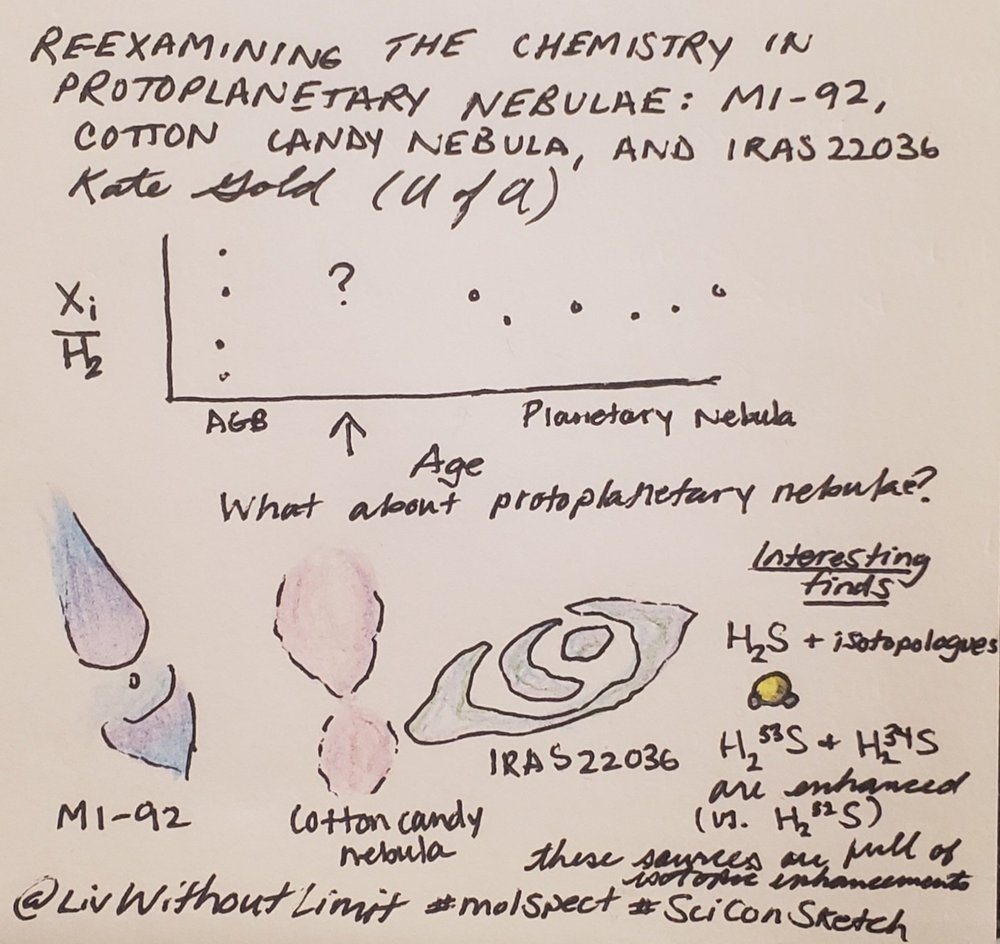 RE-EXAMINING THE CHEMISTRY IN
PROTOPLANETARY NEBULAE: M1-92,
COTTON CANDY NEBULA, AND IRAS 22036
Kate Gold (U of A)
Xi
H2
?
AGB
Planetary Nebula
Age
What about protoplanetary nebulae?
Interesting
finds
H2S + isotopologues
H2 33S + H2 34S
are enhanced
(vs. H2 32S)
these sources are full of
isotopic enhancements
M1-92
Cotton candy
nebula
IRAS 22036
@LivWithoutLimit #molspect #SciConSketch